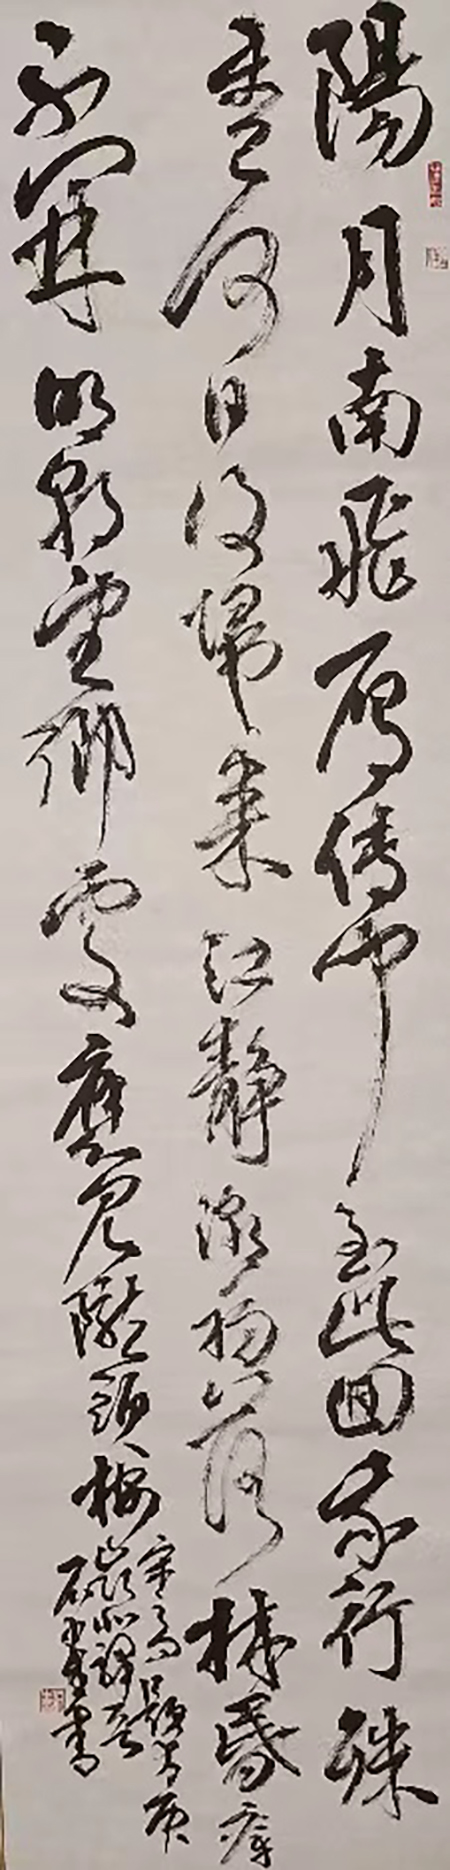 陽月南飛雁傳聞至此回我行殊
未已何日復歸來江靜潮初落林昏瘴
不開明朝望鄉處應見隴頭梅
宋之問題大庾
嶺北驛
書